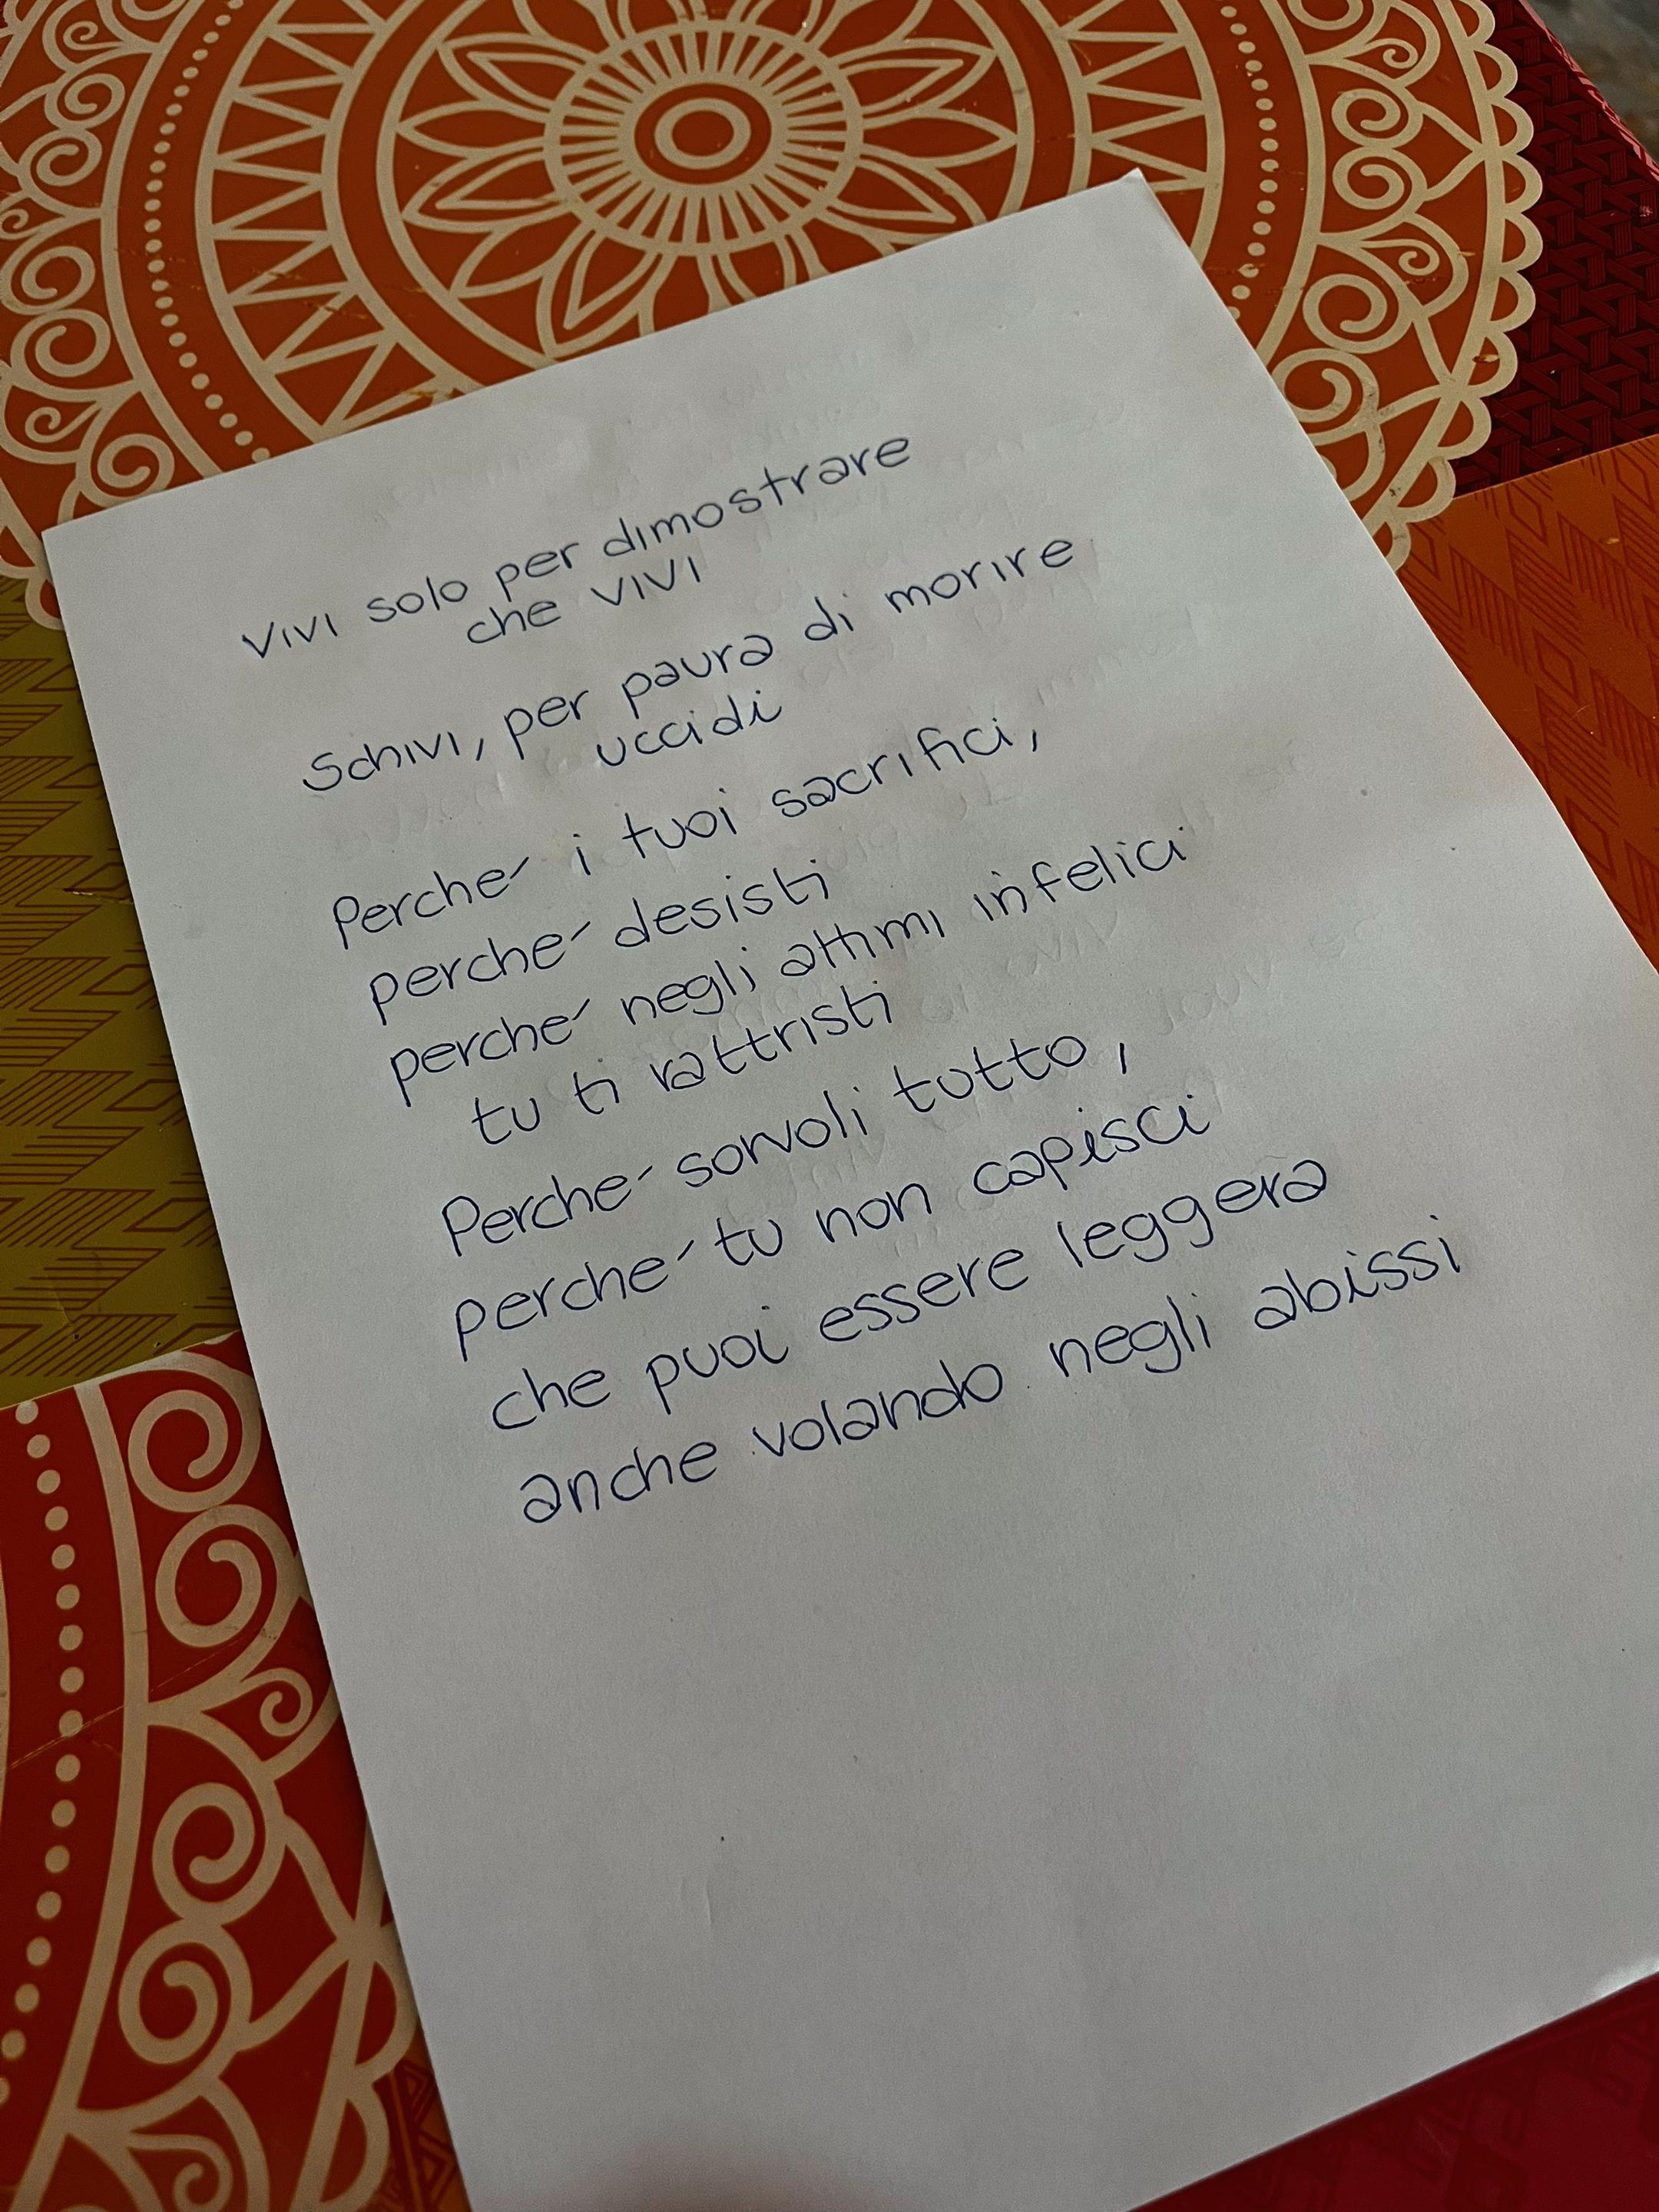 Vivi solo per dimostrare
che vivi
Schivi, per paura di morire
uccidi
Perché i tuoi sacrifici,
perché desisti
perché negli attimi infelici
tu ti rattristi
Perché sorvoli tutto,
perché tu non capisci
che puoi essere leggera
anche volando negli abissi